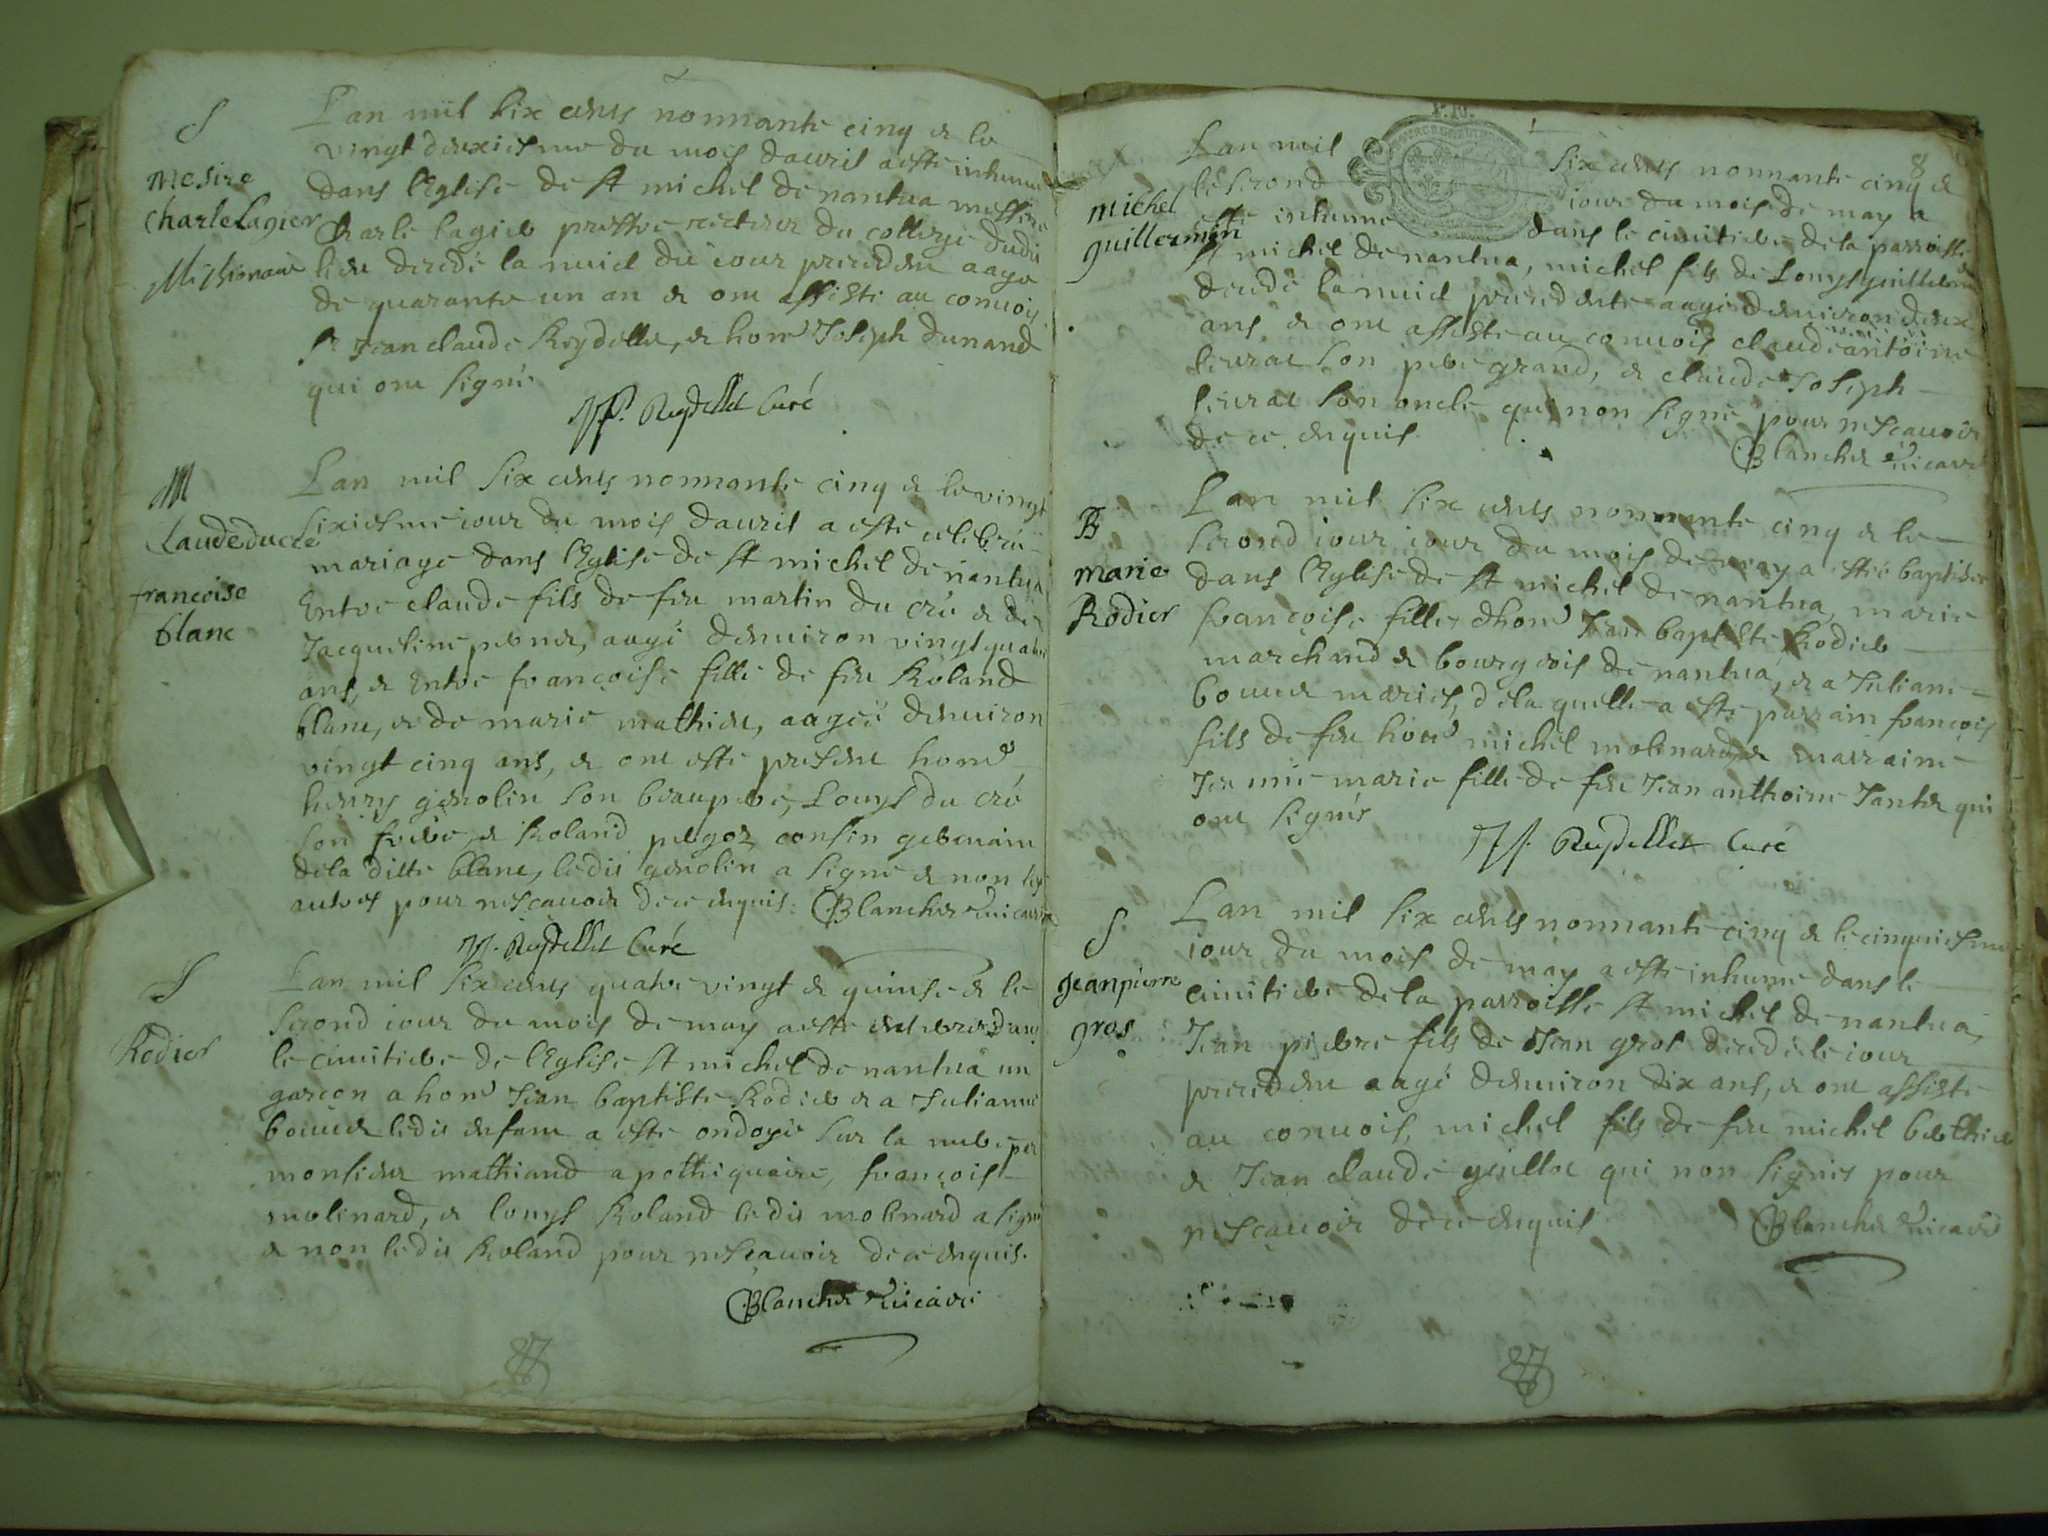 S
Mesire
Charle Lagier
Missionaire
Lan mil six cents nonnante cinq & le
vingt deuxiesme du mois dauril a este inhumé
dans lEglise de st michel de nantua messire
Charle lagier prestre recteur du college dudit
lieu decedé la nuict du iour precedent aagé
de quarante un an & ont assisté au conuois
sr Jean claude Reydellet, & honn Joseph dunand
qui ont signé
Reydellet Curé
M
Claude ducré
francoise
blanc
Lan mil six cents nonnante cinq & le vingt
sixiesme iour du mois dauril a esté celebré
mariage dans lEglise de st michel de nantua
Entre claude fils de feu martin du cré & de
Jacqueline perner, aagé denuiron vingt quatre
ans, & Entre françoise fille de feu Roland
blanc, & de marie mathieu, aagée denuiron
vingt cinq ans, & ont esté present honn
henry genolin son beaupere, Louys du cré
son frere, & Roland pergoz cousin germain
dela ditte blanc, ledit genolin a signé & non les
autres pour ne scauoir de ce enquis. Blanchet vicaire
Reydellet Curé
S
Rodier
Lan mil six cents quatre vingt & quinse & le
second iour du mois de may a esté enterré dans
le cimitiere de lEglise st michel de nantua un
garçon a honn Jean baptiste Rodier & a Julianne
bouuier ledit enfant a esté ondoyé sur la
monsieur mathiand apothiquaire, françois
molinard, & louys Roland ledit molinard a signé
& non ledit Roland pour ne scauoir de ce enquis.
Blanchet vicaire
8
michel
guillermen
Lan mil six cents nonnante cinq &
le second iour du mois de may a
esté inhumé dans le cimitiere dela parroisse
st michel de nantua, michel fils de Louys guillermen
decedé la nuict precedente aagé denuiron deux
ans, & ont assisté au conuois claude antoine
leurat son pere grand, & claude Joseph
leurat son oncle qui non signé pour ne scauoir
de ce enquis
Blanchet vicaire
B
marie
Rodier
Lan mil six cents nonnante cinq & le
second iour iour du mois de may a esté baptisée
dans lEglise de st michel de nantua, marie
françoise fille dhonn Jean baptiste Rodier
marchand & bourgeois de nantua, & a Juliane
bouuier mariés, dela quelle a esté parrain françois
fils de feu honn michel molinard & marraine
Jeanne marie fille de feu Jean anthoine Jantet qui
ont signés
Reydellet Curé
S
Jean pierre
gros
Lan mil six cents nonnante cinq & le cinquiesme
iour du mois de may a esté inhumé dans le
cimitiere dela parroisse st michel de nantua,
Jean pierre fils de Jean gros decedé le iour
precedent aagé denuiron dix ans, & ont assisté
au conuois, michel fils de feu michel berthier
& Jean claude guillot qui non signés pour
ne scauoir de ce enquis
Blanchet vicaire